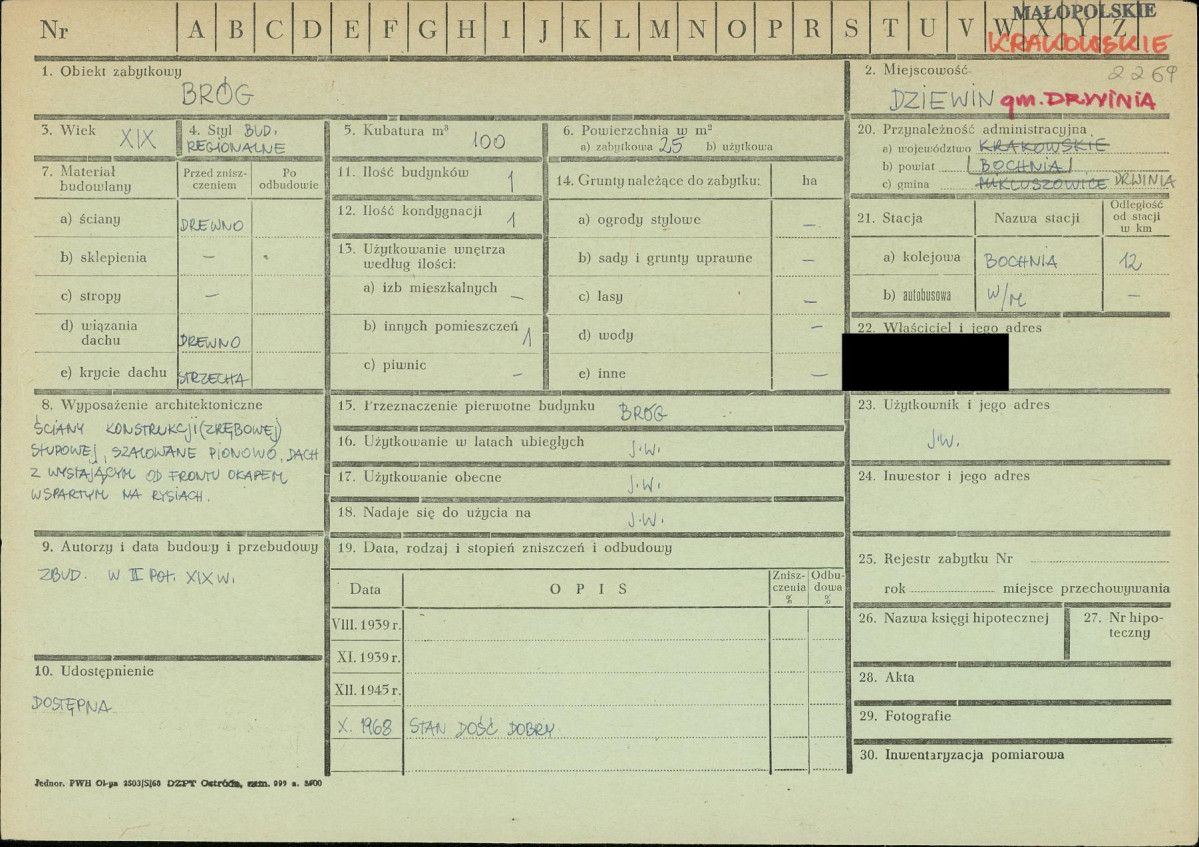 Nr A B C D E F G H I J K L M N O P R S T U V W X Y Z
MAŁOPOLSKIE
KRAKOWSKIE
2269
1. Obiekt zabytkowy
BRÓG
2. Miejscowość
DZIEWIN gm. DRWINIA
3. Wiek XIX
4. Styl BUD. REGIONALNE
5. Kubatura m³ 100
6. Powierzchnia w m²
a) zabytkowa 25 b) użytkowa
20. Przynależność administracyjna
a) województwo KRAKOWSKIE
b) powiat BOCHNIA
c) gmina MIKLUSZOWICE DRWINIA
7. Materiał budowlany
Przed zniszczeniem
Po odbudowie
a) ściany DREWNO
b) sklepienia —
c) stropy —
d) wiązania dachu DREWNO
e) krycie dachu STRZECHA
11. Ilość budynków 1
12. Ilość kondygnacji 1
13. Użytkowanie wnętrza według ilości:
a) izb mieszkalnych —
b) innych pomieszczeń 1
c) piwnic —
14. Grunty należące do zabytku: ha
a) ogrody stylowe —
b) sady i grunty uprawne —
c) lasy —
d) wody —
e) inne —
21. Stacja
Nazwa stacji
Odległość od stacji w km
a) kolejowa BOCHNIA 12
b) autobusowa W/M —
22. Właściciel i jego adres
8. Wyposażenie architektoniczne
ŚCIANY KONSTRUKCJI (ZRĘBOWEJ)
SŁUPOWEJ, SZALOWANE PIONOWO, DACH
Z WYSTAJĄCYM OD FRONTU OKAPEM
WSPARTYM NA RYSIACH.
15. Przeznaczenie pierwotne budynku BRÓG
16. Użytkowanie w latach ubiegłych J.W.
17. Użytkowanie obecne J.W.
18. Nadaje się do użycia na J.W.
23. Użytkownik i jego adres
J.W.
24. Inwestor i jego adres
9. Autorzy i data budowy i przebudowy
ZBUD. W II POŁ. XIX W.
10. Udostępnienie
DOSTĘPNA
19. Data, rodzaj i stopień zniszczeń i odbudowy
Data
OPIS
Zniszczenia %
Odbudowa %
VIII. 1939 r.
XI. 1939 r.
XII. 1945 r.
X. 1968 STAN DOŚĆ DOBRY
25. Rejestr zabytku Nr
rok miejsce przechowywania
26. Nazwa księgi hipotecznej
27. Nr hipoteczny
28. Akta
29. Fotografie
30. Inwentaryzacja pomiarowa
Jednor. PWH Ol-pa 2503/S/68 DZPT Ostróda, zam. 999 n.